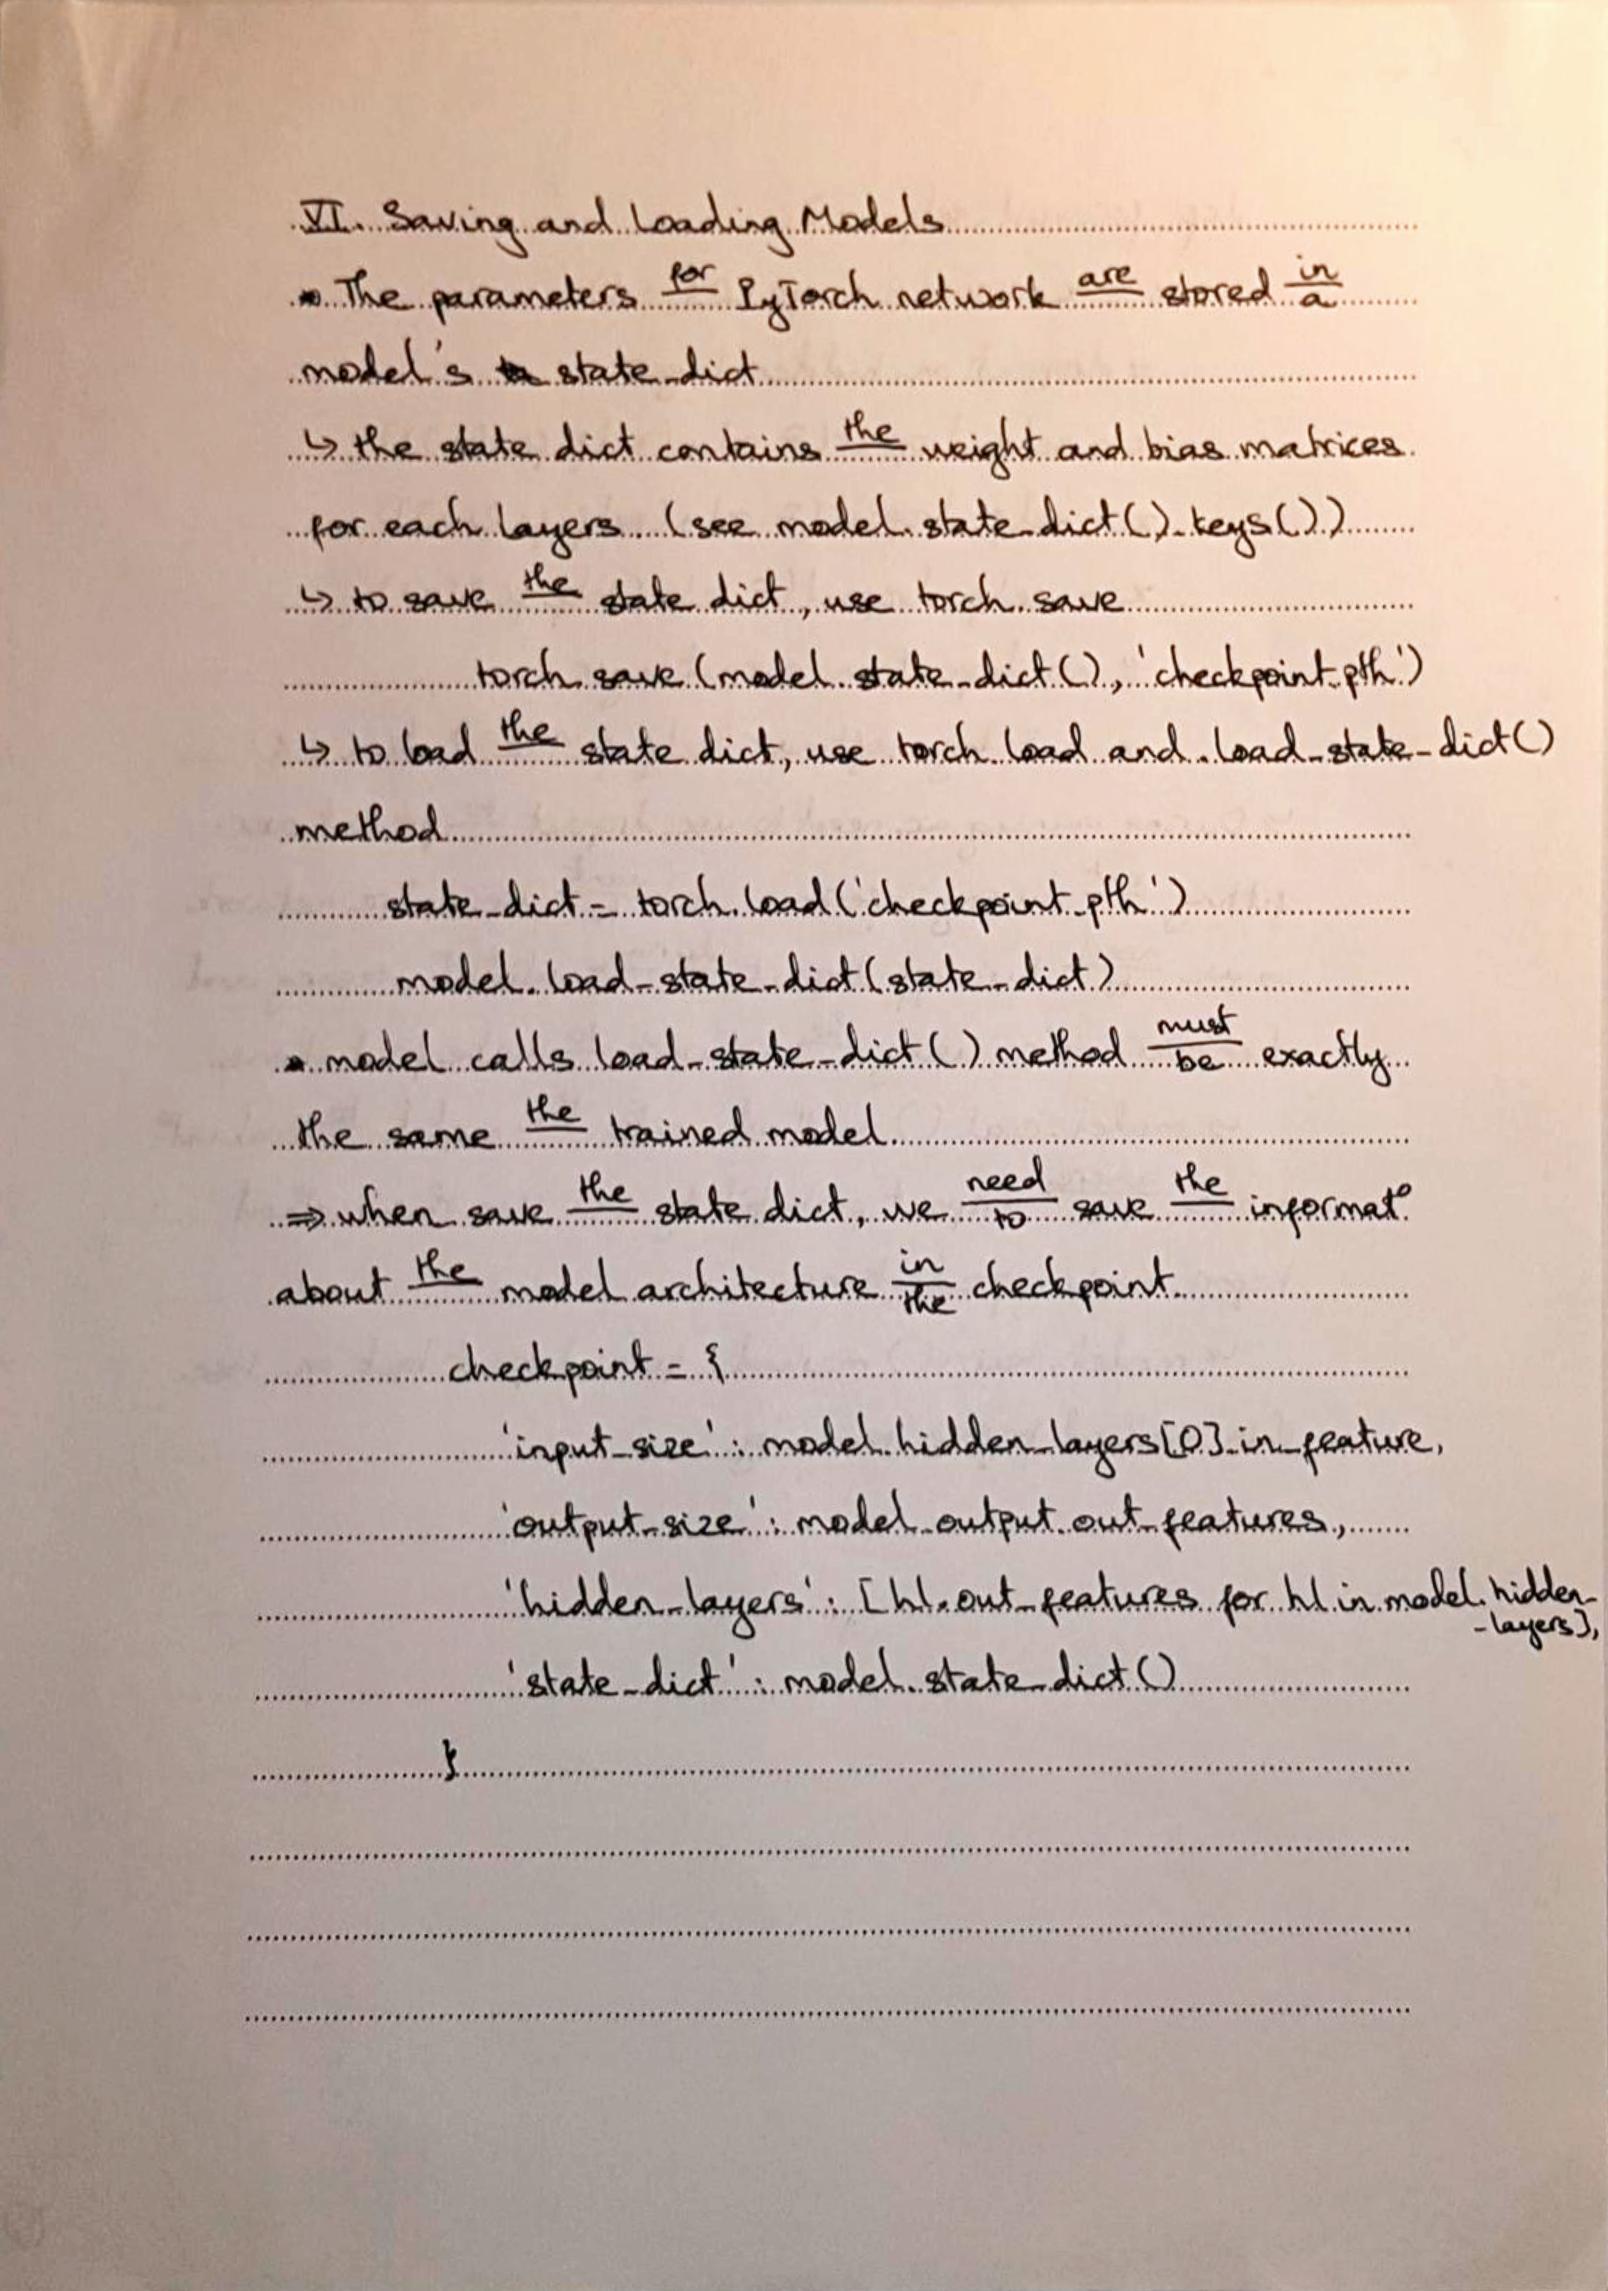 VI. Saving and Loading Models
• The parameters for PyTorch network are stored in a
model's state_dict
↳ the state dict contains the weight and bias matrices
for each layers (see model.state_dict().keys())
↳ to save the state dict, use torch.save
torch.save(model.state_dict(), 'checkpoint.pth')
↳ to load the state dict, use torch.load and .load_state_dict()
method
state_dict = torch.load('checkpoint.pth')
model.load_state_dict(state_dict)
• model calls load_state_dict() method must be exactly
the same the trained model
⇒ when save the state dict, we need to save the informat°
about the model architecture in the checkpoint
checkpoint = {
'input_size': model.hidden_layers[0].in_feature,
'output_size': model.output.out_features,
'hidden_layers': [hl.out_features for hl in model.hidden_
_layers],
'state_dict': model.state_dict()
}